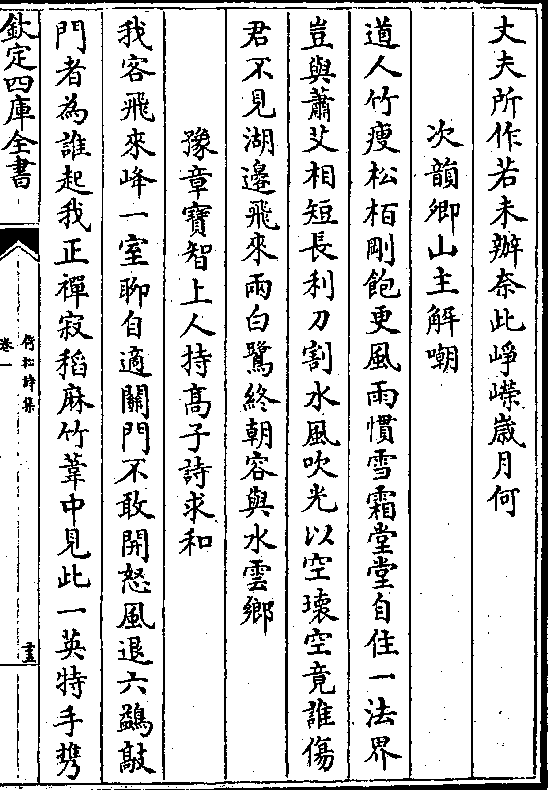 丈夫所作若未辦奈此崢嶸歲月何
次韻卿山主解嘲
道人竹瘦松栢剛飽更風雨慣雪霜堂堂自住一法界
豈與蕭艾相短長利刀割水風吹光以空壊空竟誰傷
君不見湖邉飛來兩白鷺終朝容與水雲鄉
豫章寶智上人持髙子詩求和
我客飛來峰一室聊自適關門不敢開怒風退六鷁敲
門者為誰起我正禪寂稻麻竹葦中見此一英特手擕
欽定四庫全書
竹松詩集
卷一